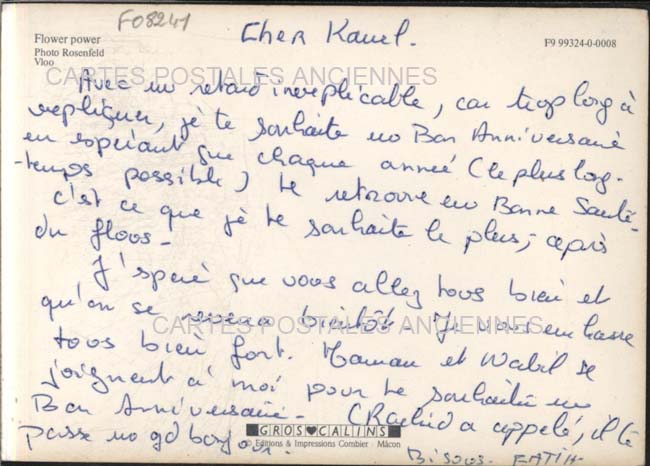 F08241
Cher Kamel.
Flower power
Photo Rosenfeld
Vloo
F9 99324-0-0008
CARTES POSTALES ANCIENNES
Avec un retard inexplicable, car trop long à
expliquer, je te souhaite un Bon Anniversaire
en espérant que chaque année (le plus long-
-temps possible) te retrouve en Bonne Santé-
c'est ce que je te souhaite le plus, après
du floos-
J'espère que vous allez tous bien et
qu'on se reverra bientôt. Je vous embrasse
CARTES POSTALES ANCIENNES
tous bien fort. Maman et Nabil se
joignent à moi pour te souhaiter un
Bon Anniversaire- (Rachid a appelé, il te
passe un gd bonjour.
GROS CALINS
© Editions & Impressions Combier - Mâcon
Bisous- FATIH-